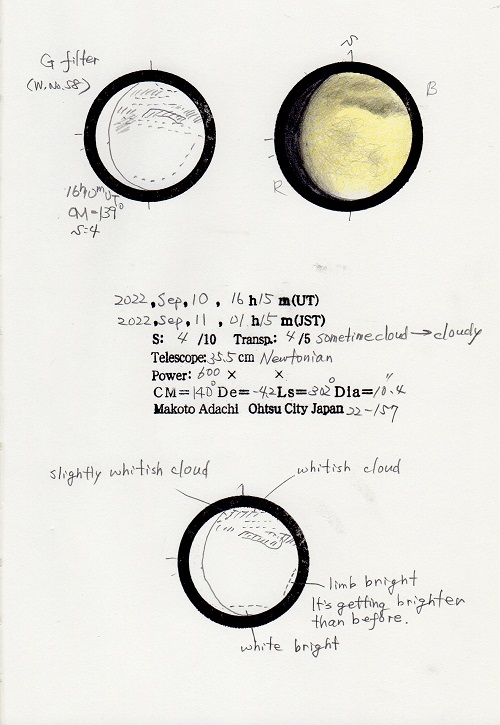 G filter
(W.No.58)
S
B
R
16h10m UT
CM=139°
S=4
2022, Sep, 10, 16 h 15 m(UT)
2022, Sep, 11, 01 h 15 m(JST)
S: 4 /10 Transp.: 4 /5 sometime cloud → cloudy
Telescope: 35.5 cm Newtonian
Power: 600 × ×
CM=140° De=-4.2 Ls=302° Dia=10.4"
Makoto Adachi Ohtsu City Japan 22-157
slightly whitish cloud
whitish cloud
limb bright
It's getting brighter
than before.
white bright